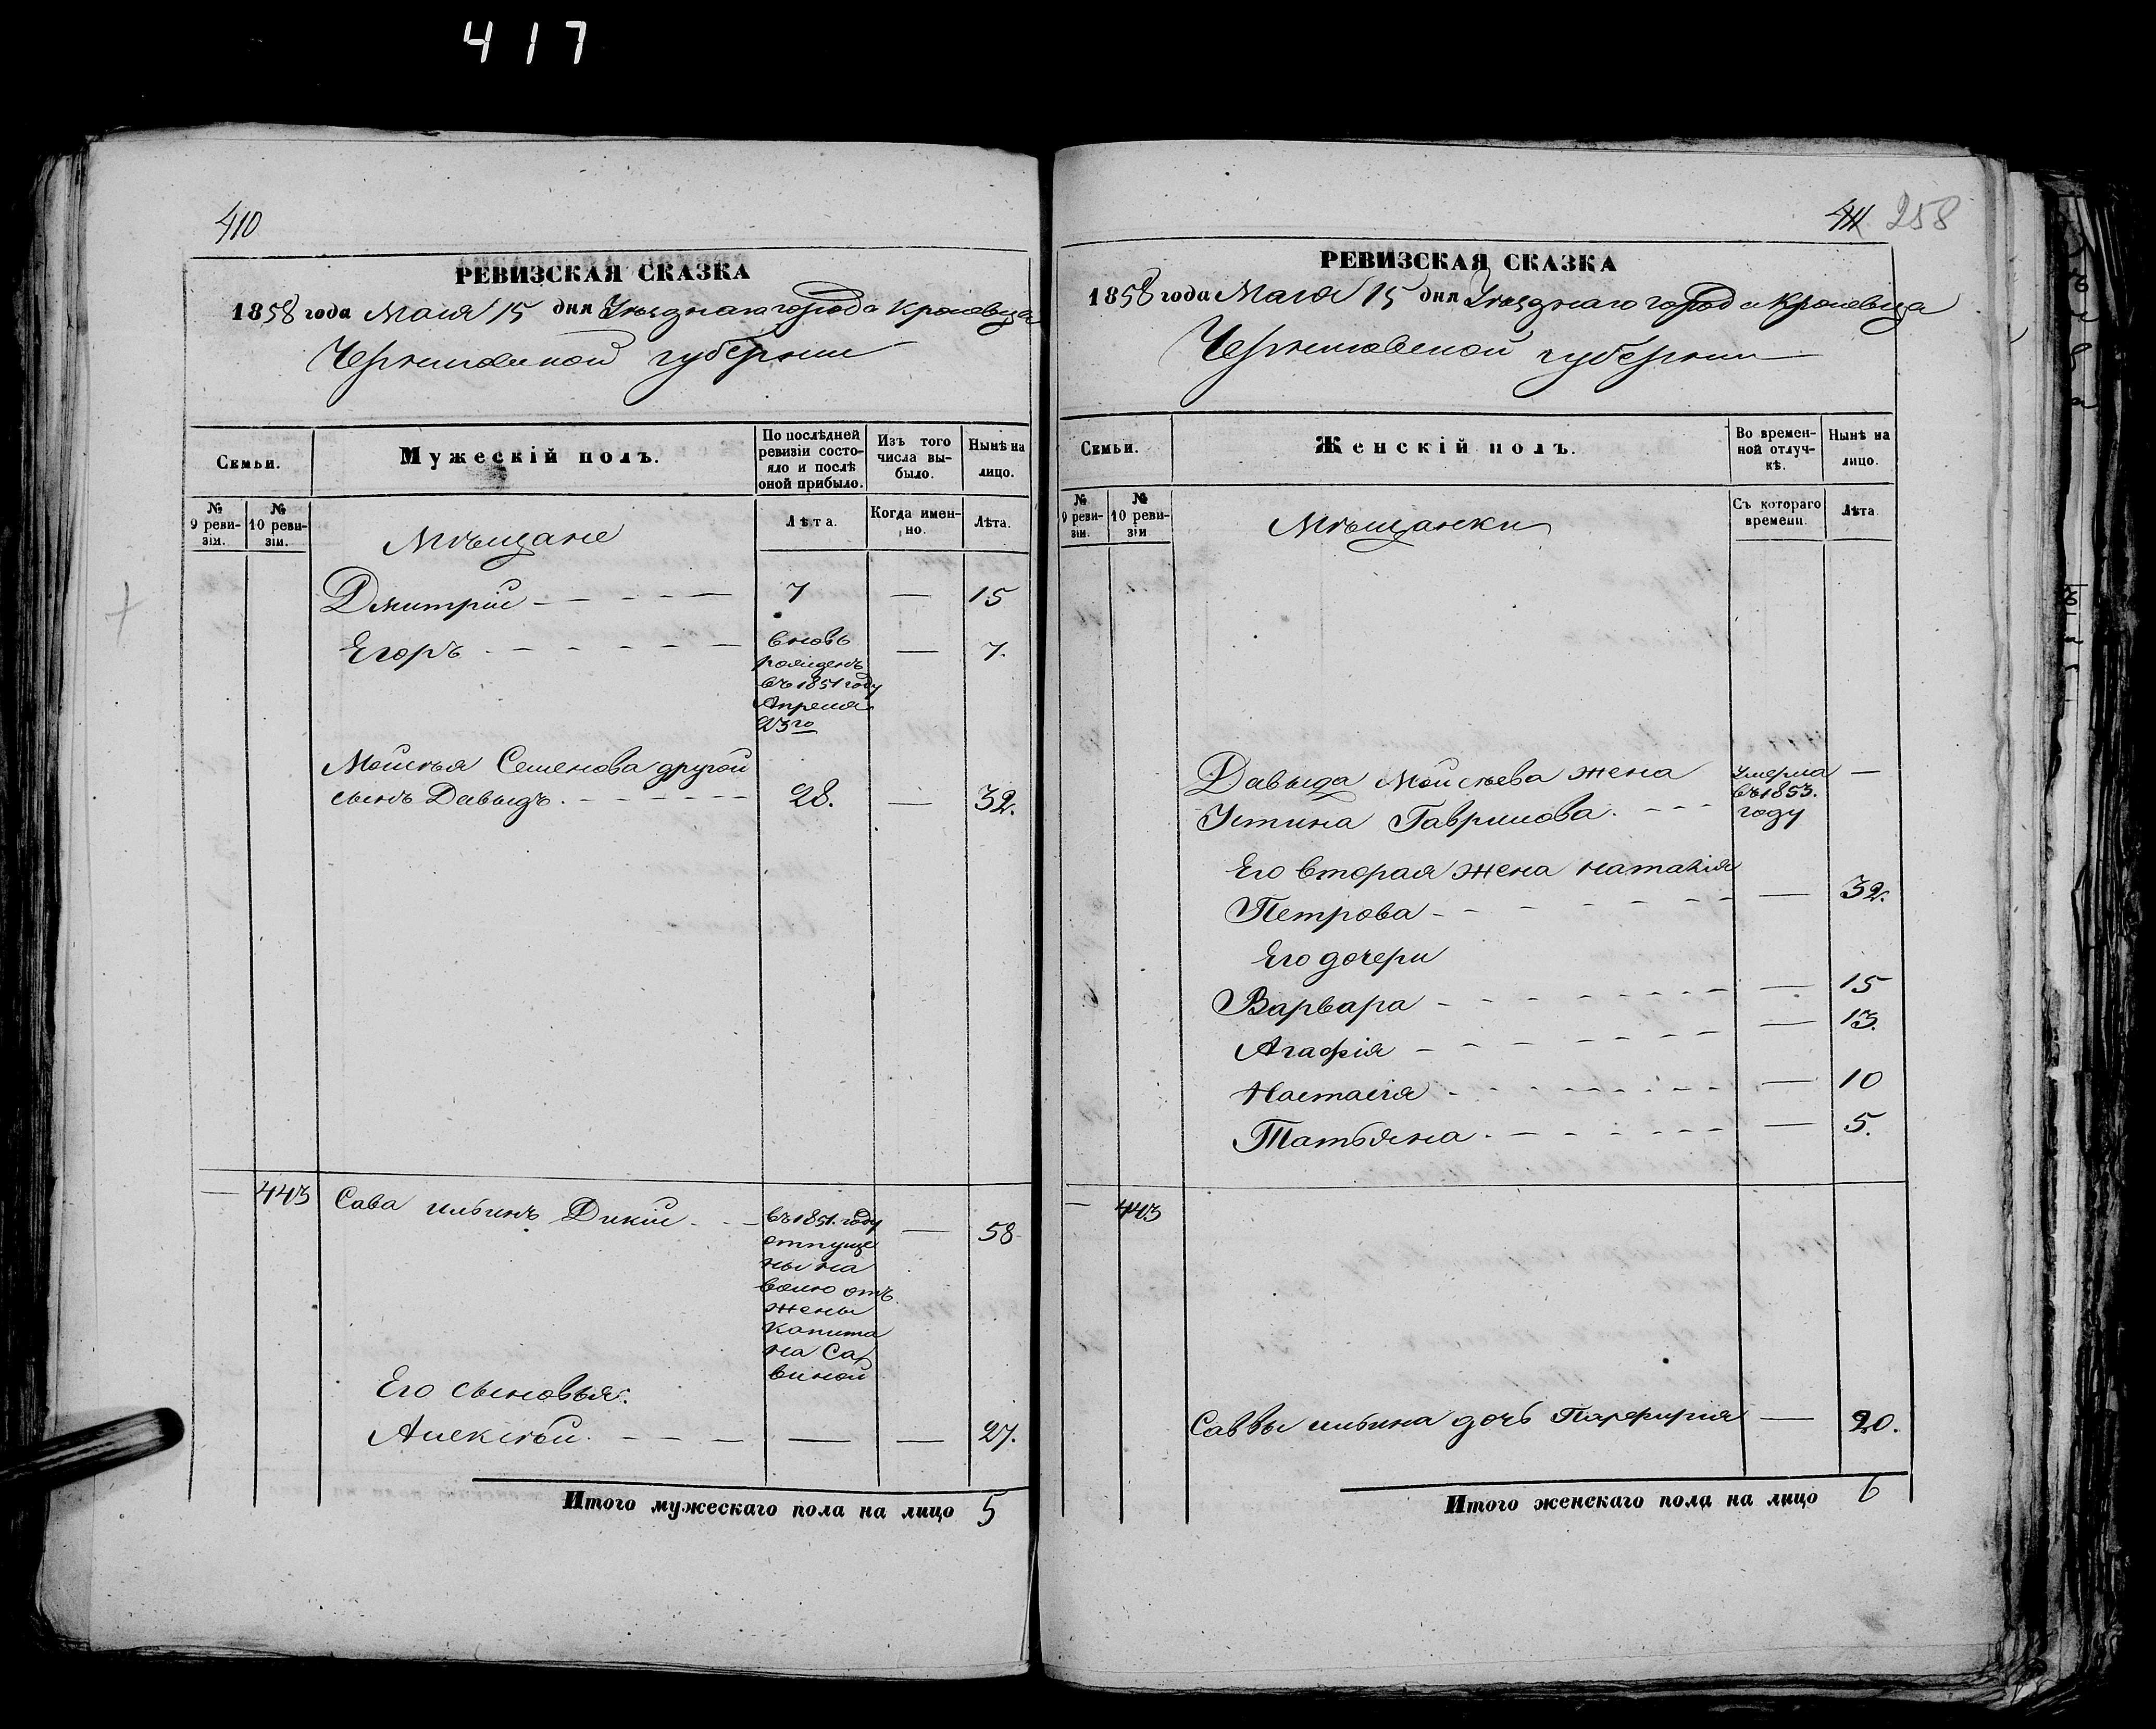 417
410
РЕВИЗСКАЯ СКАЗКА
1858 года Маія 15 дня Уѣзднаго города Кролевца
Черниговской губерніи
Семьи.
Мужескій полъ.
По послѣдней
ревизіи состо-
яло и послѣ
оной прибыло.
Изъ того
числа вы-
было.
Нынѣ на
лицо.
№
9 реви-
зіи.
№
10 реви-
зіи.
Мѣщане
Лѣта.
Когда имен-
но.
Лѣта.
Дмитрій — 7 — 15
Егоръ — вновь — 7.
рожденъ
въ 1851 году
Апреля
23го
Мойсѣя Семенова другой
сынъ Давыдъ. — 28. — 32.
— 443 Сава ильинъ Дикій — въ 1851. году — 58
отпуще
ны на
волю отъ
жены
капита
на Са
виной
Его сыновья:
Алексѣй. — — — 27.
Итого мужескаго пола на лицо 5
411 258
РЕВИЗСКАЯ СКАЗКА
1858 года Маія 15 дня Уѣзднаго города Кролевца
Черниговской губерніи
Семьи.
Женскій полъ.
Во времен-
ной отлуч-
кѣ.
Нынѣ на
лицо.
№
9 реви-
зіи.
№
10 реви-
зіи
Мѣщанки
Съ котораго
времени.
Лѣта.
Давыда Мойсѣева жена умерла —
въ 1853.
Устина Гаврилова. — году
Его вторая жена наталія
Петрова — — 32.
Его дочери
Варвара — — 15
Агафія — — 13.
Настасія — — 10
Татьяна. — — 5.
— 443
Саввы ильина дочь Парфирія — 20.
Итого женскаго пола на лицо 6